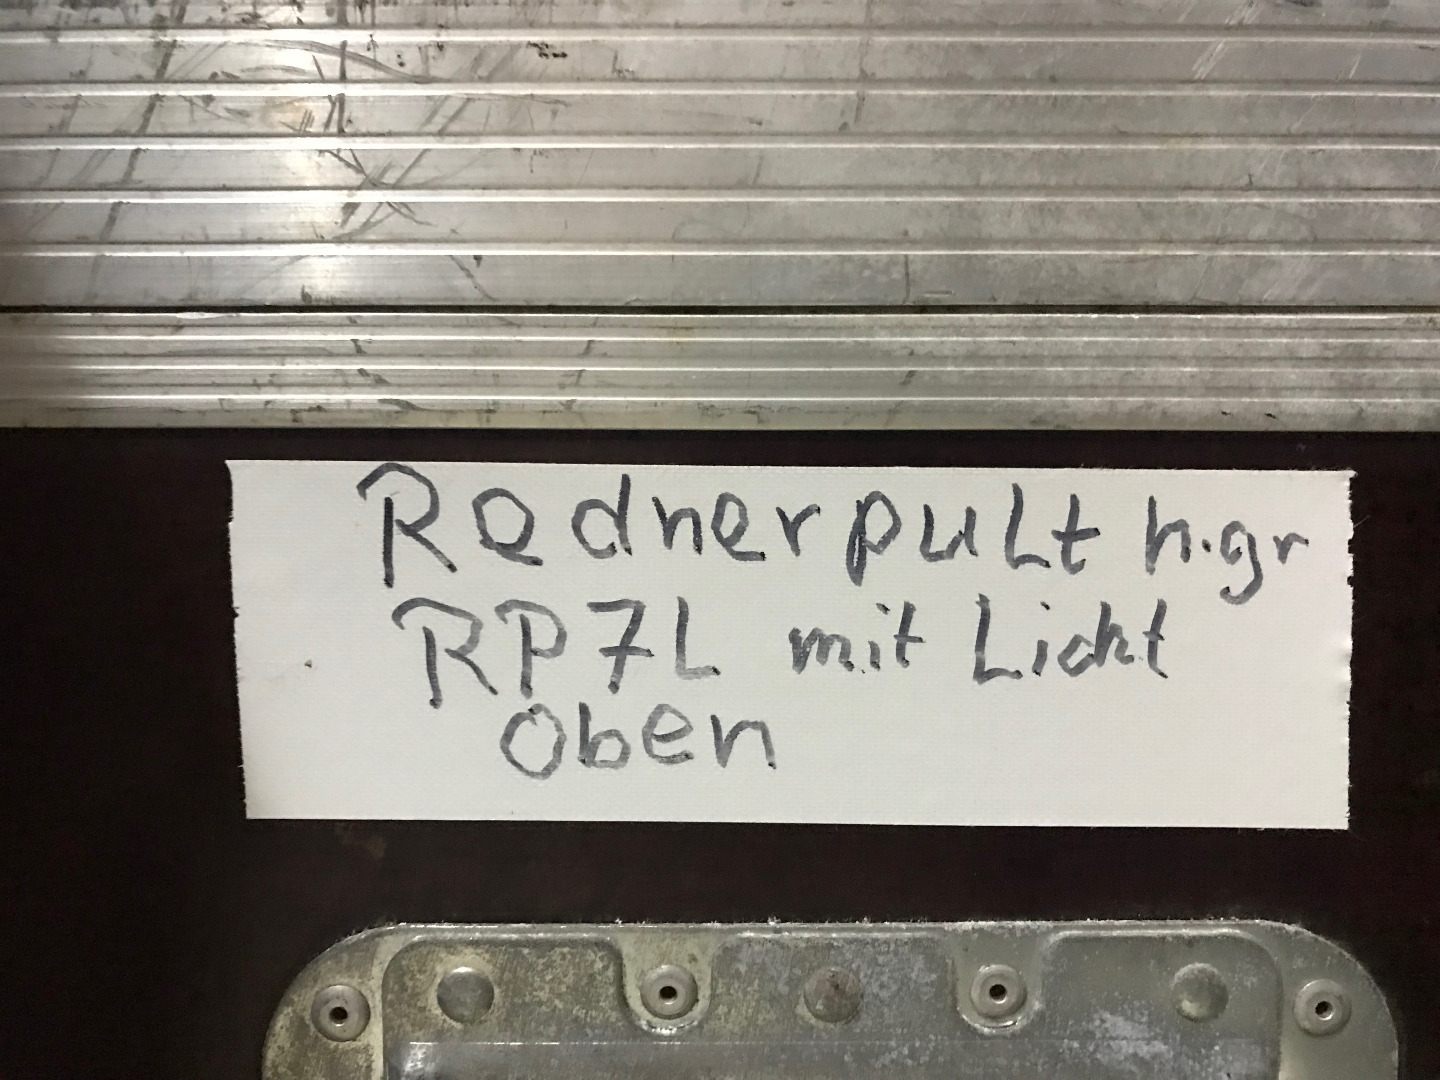 Rednerpult h.gr
RP7L mit Licht
Oben